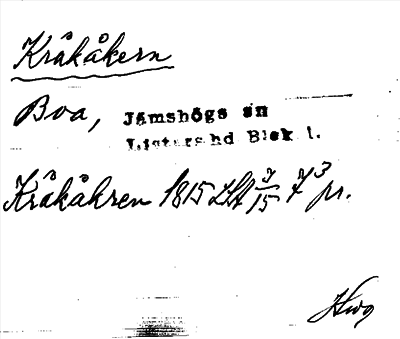 Kråkåkern
Boa, Jämshögs sn
Listers hd Blek l.
Kråkåkren 1815 LSA
Hwg